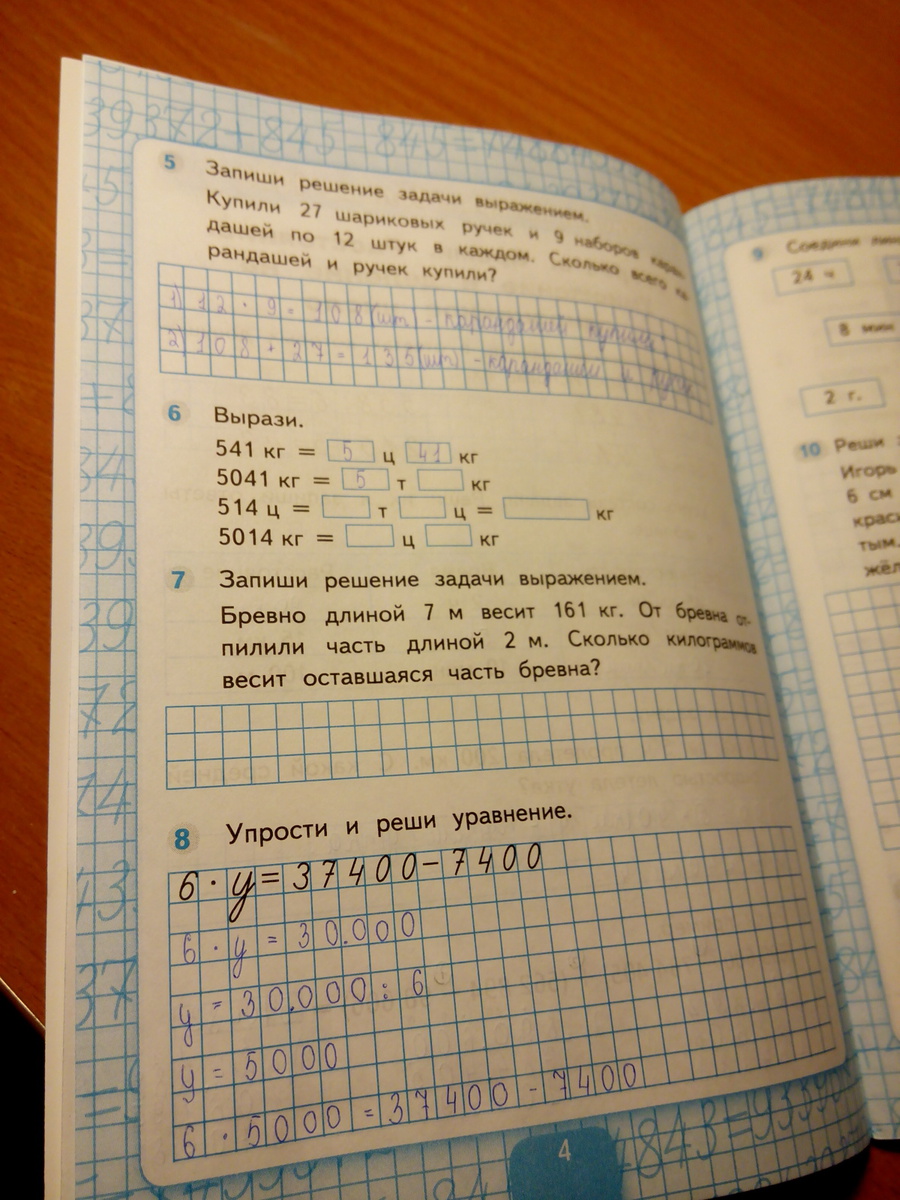 39372+845-845=
5 Запиши решение задачи выражением.
Купили 27 шариковых ручек и 9 наборов каран-
дашей по 12 штук в каждом. Сколько всего ка-
рандашей и ручек купили?
1) 12 · 9 = 108 (шт) - карандашей
2) 108 + 27 = 135 (шт) - карандашей и
6 Вырази.
541 кг = 5 ц 41 кг
5041 кг = 5 т кг
514 ц = т ц = кг
5014 кг = ц кг
7 Запиши решение задачи выражением.
Бревно длиной 7 м весит 161 кг. От бревна от-
пилили часть длиной 2 м. Сколько килограммов
весит оставшаяся часть бревна?
8 Упрости и реши уравнение.
6 · y = 37400 – 7400
6 · y = 30.000
y = 30.000 : 6
y = 5000
6 · 5000 = 37400 - 7400
4
9 Соедини
24 ч
8 мин
2 г.
10 Реши
Игорь
6 см
крас
тым.
жёл